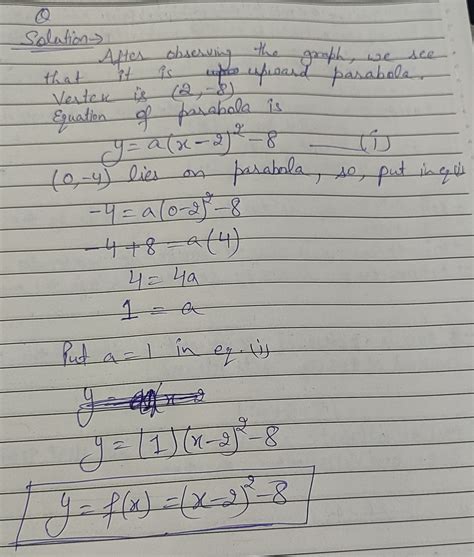 Q
Solution→
After observing the graph, we see
that it is upward parabola.
Vertex is (2, -8)
Equation of parabola is
y = a(x-2)² - 8 —— (i)
(0, -4) lies on parabola, so, put in eq (i)
-4 = a(0-2)² - 8
-4 + 8 = a(4)
4 = 4a
1 = a
Put a = 1 in eq. (i)
y = (1) (x-2)² - 8
y = f(x) = (x-2)² - 8